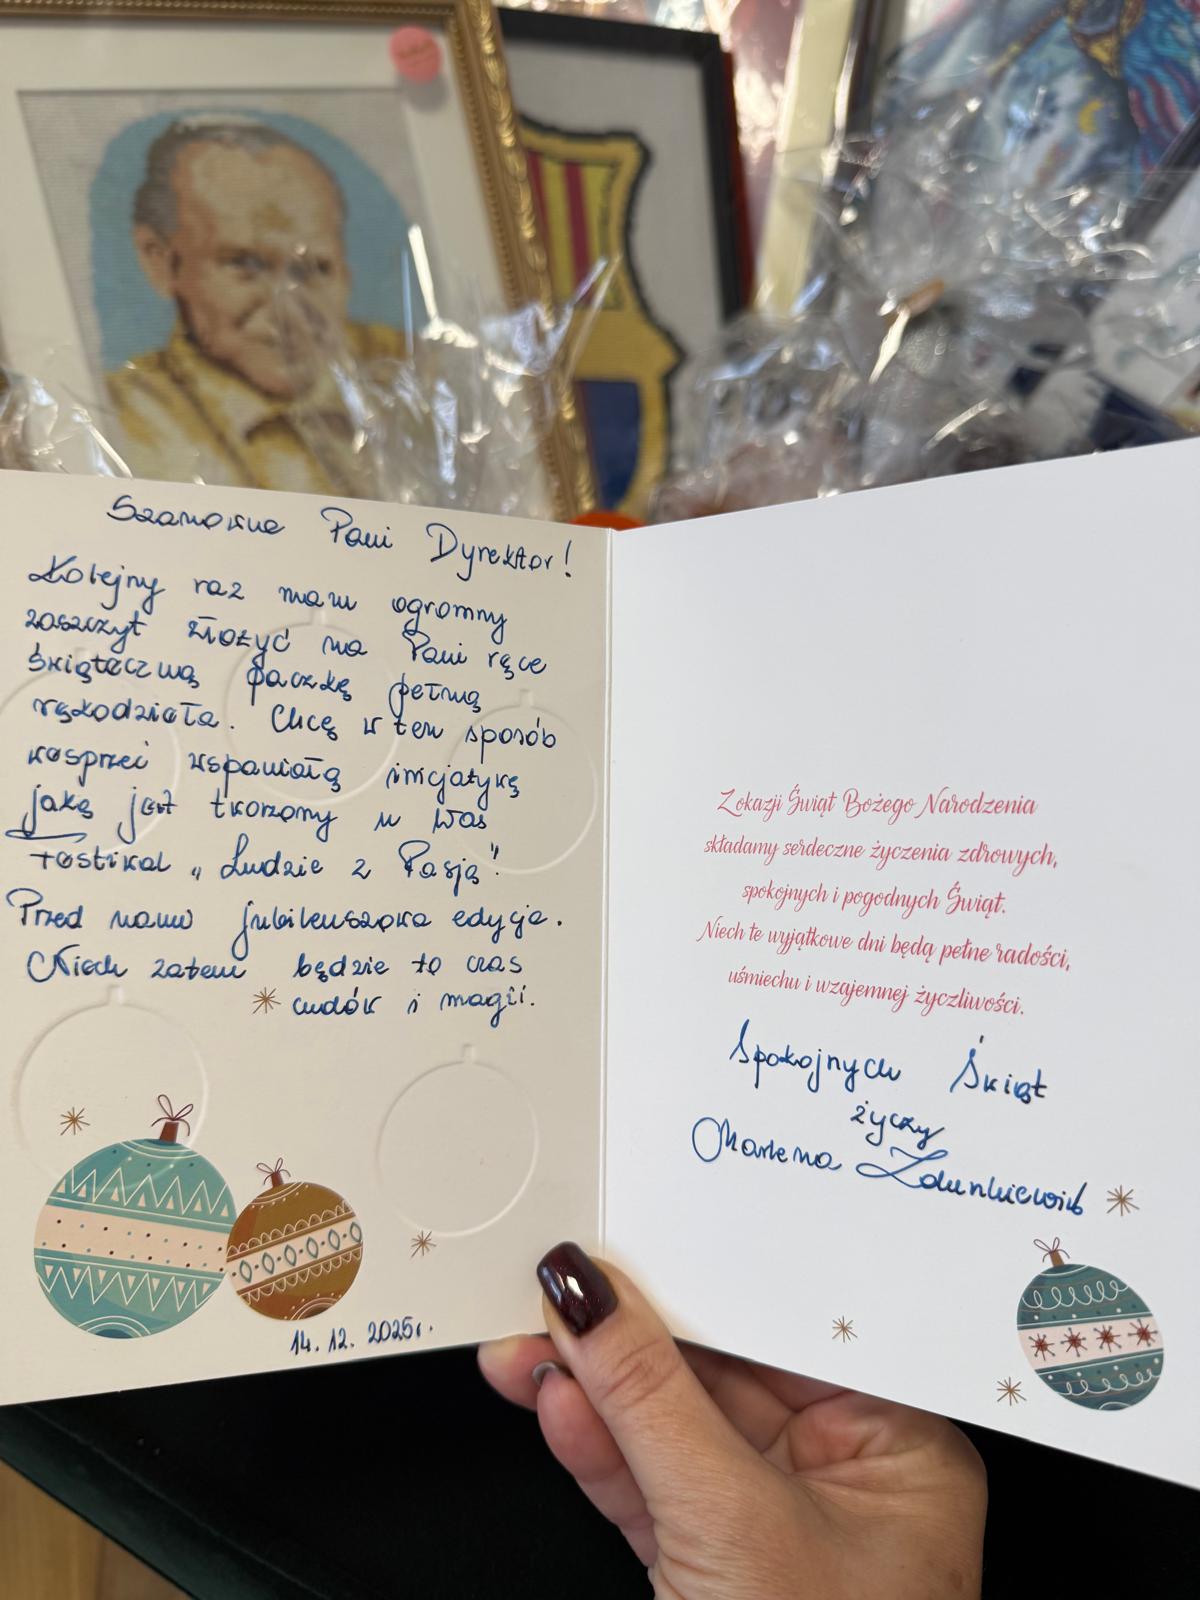 Szanowna Pani Dyrektor!
Kolejny raz mam ogromny
zaszczyt złożyć na Pani ręce
świąteczną paczkę pełną
rękodzieła. Chcę w ten sposób
wesprzeć wspaniałą inicjatywę
jaką jest tworzony u Was
festiwal „Ludzie z Pasją".
Przed nami jubileuszowa edycja.
Niech zatem będzie to czas
cudów i magii.
14. 12. 2025r.
Z okazji Świąt Bożego Narodzenia
składamy serdeczne życzenia zdrowych,
spokojnych i pogodnych Świąt.
Niech te wyjątkowe dni będą pełne radości,
uśmiechu i wzajemnej życzliwości.
Spokojnych Świąt
życzy
Marlena Zdunkiewicz